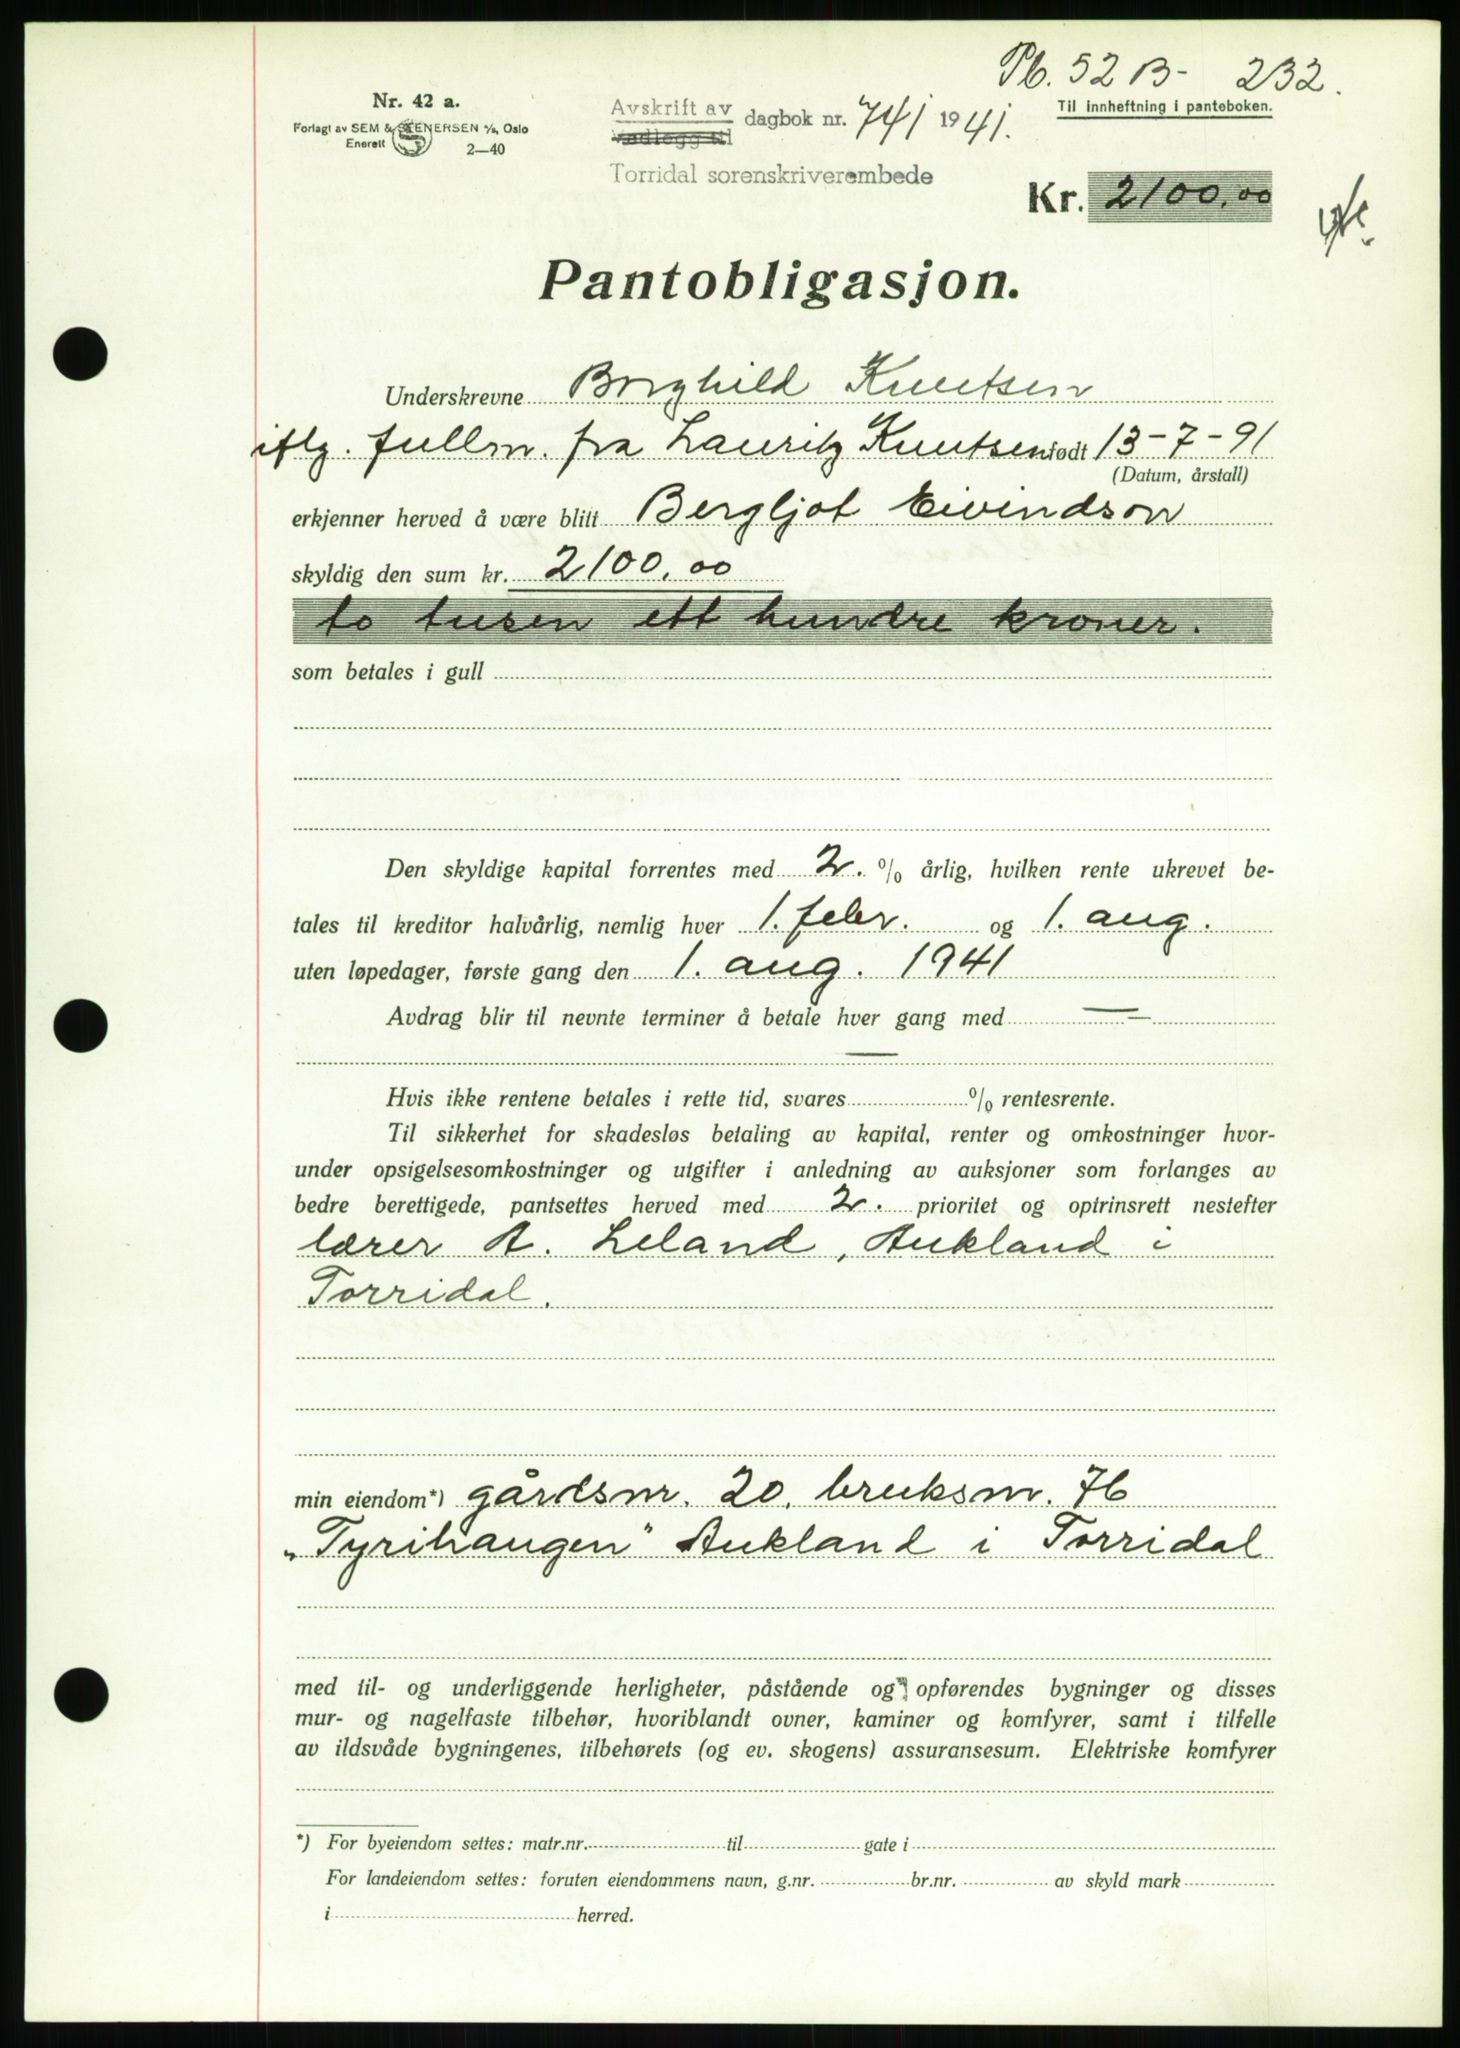 Pb. 52 B- 232.
Nr. 42 a.
Forlagt av SEM & STENERSEN A/S, Oslo
Enerett 2—40
Avskrift av
Vedlegg til
dagbok nr. 741 1941.
Torridal sorenskriverembede
Til innheftning i panteboken.
Kr. 2100.00
Pantobligasjon.
Underskrevne Borghild Knutsen
iflg. fullm. fra Lauritz Knutsen født 13-7-91
(Datum, årstall)
erkjenner herved å være blitt Bergljot Eivindson
skyldig den sum kr. 2100.00
to tusen ett hundre kroner.
som betales i gull
Den skyldige kapital forrentes med 2. % årlig, hvilken rente ukrevet be-
tales til kreditor halvårlig, nemlig hver 1. febr. og 1. aug.
uten løpedager, første gang den 1. aug. 1941
Avdrag blir til nevnte terminer å betale hver gang med —
—
Hvis ikke rentene betales i rette tid, svares % rentesrente.
Til sikkerhet for skadesløs betaling av kapital, renter og omkostninger hvor-
under opsigelsesomkostninger og utgifter i anledning av auksjoner som forlanges av
bedre berettigede, pantsettes herved med 2. prioritet og optrinsrett nestefter
lærer A. Leland, Aukland i
Torridal.
min eiendom*) gårdsnr. 20, bruksnr. 76
„Tyrihaugen" Aukland i Torridal
med til- og underliggende herligheter, påstående og opførendes bygninger og disses
mur- og nagelfaste tilbehør, hvoriblandt ovner, kaminer og komfyrer, samt i tilfelle
av ildsvåde bygningenes, tilbehørets (og ev. skogens) assuransesum. Elektriske komfyrer
*) For byeiendom settes: matr.nr. til gate i
For landeiendom settes: foruten eiendommens navn, g.nr. br.nr. av skyld mark
i herred.